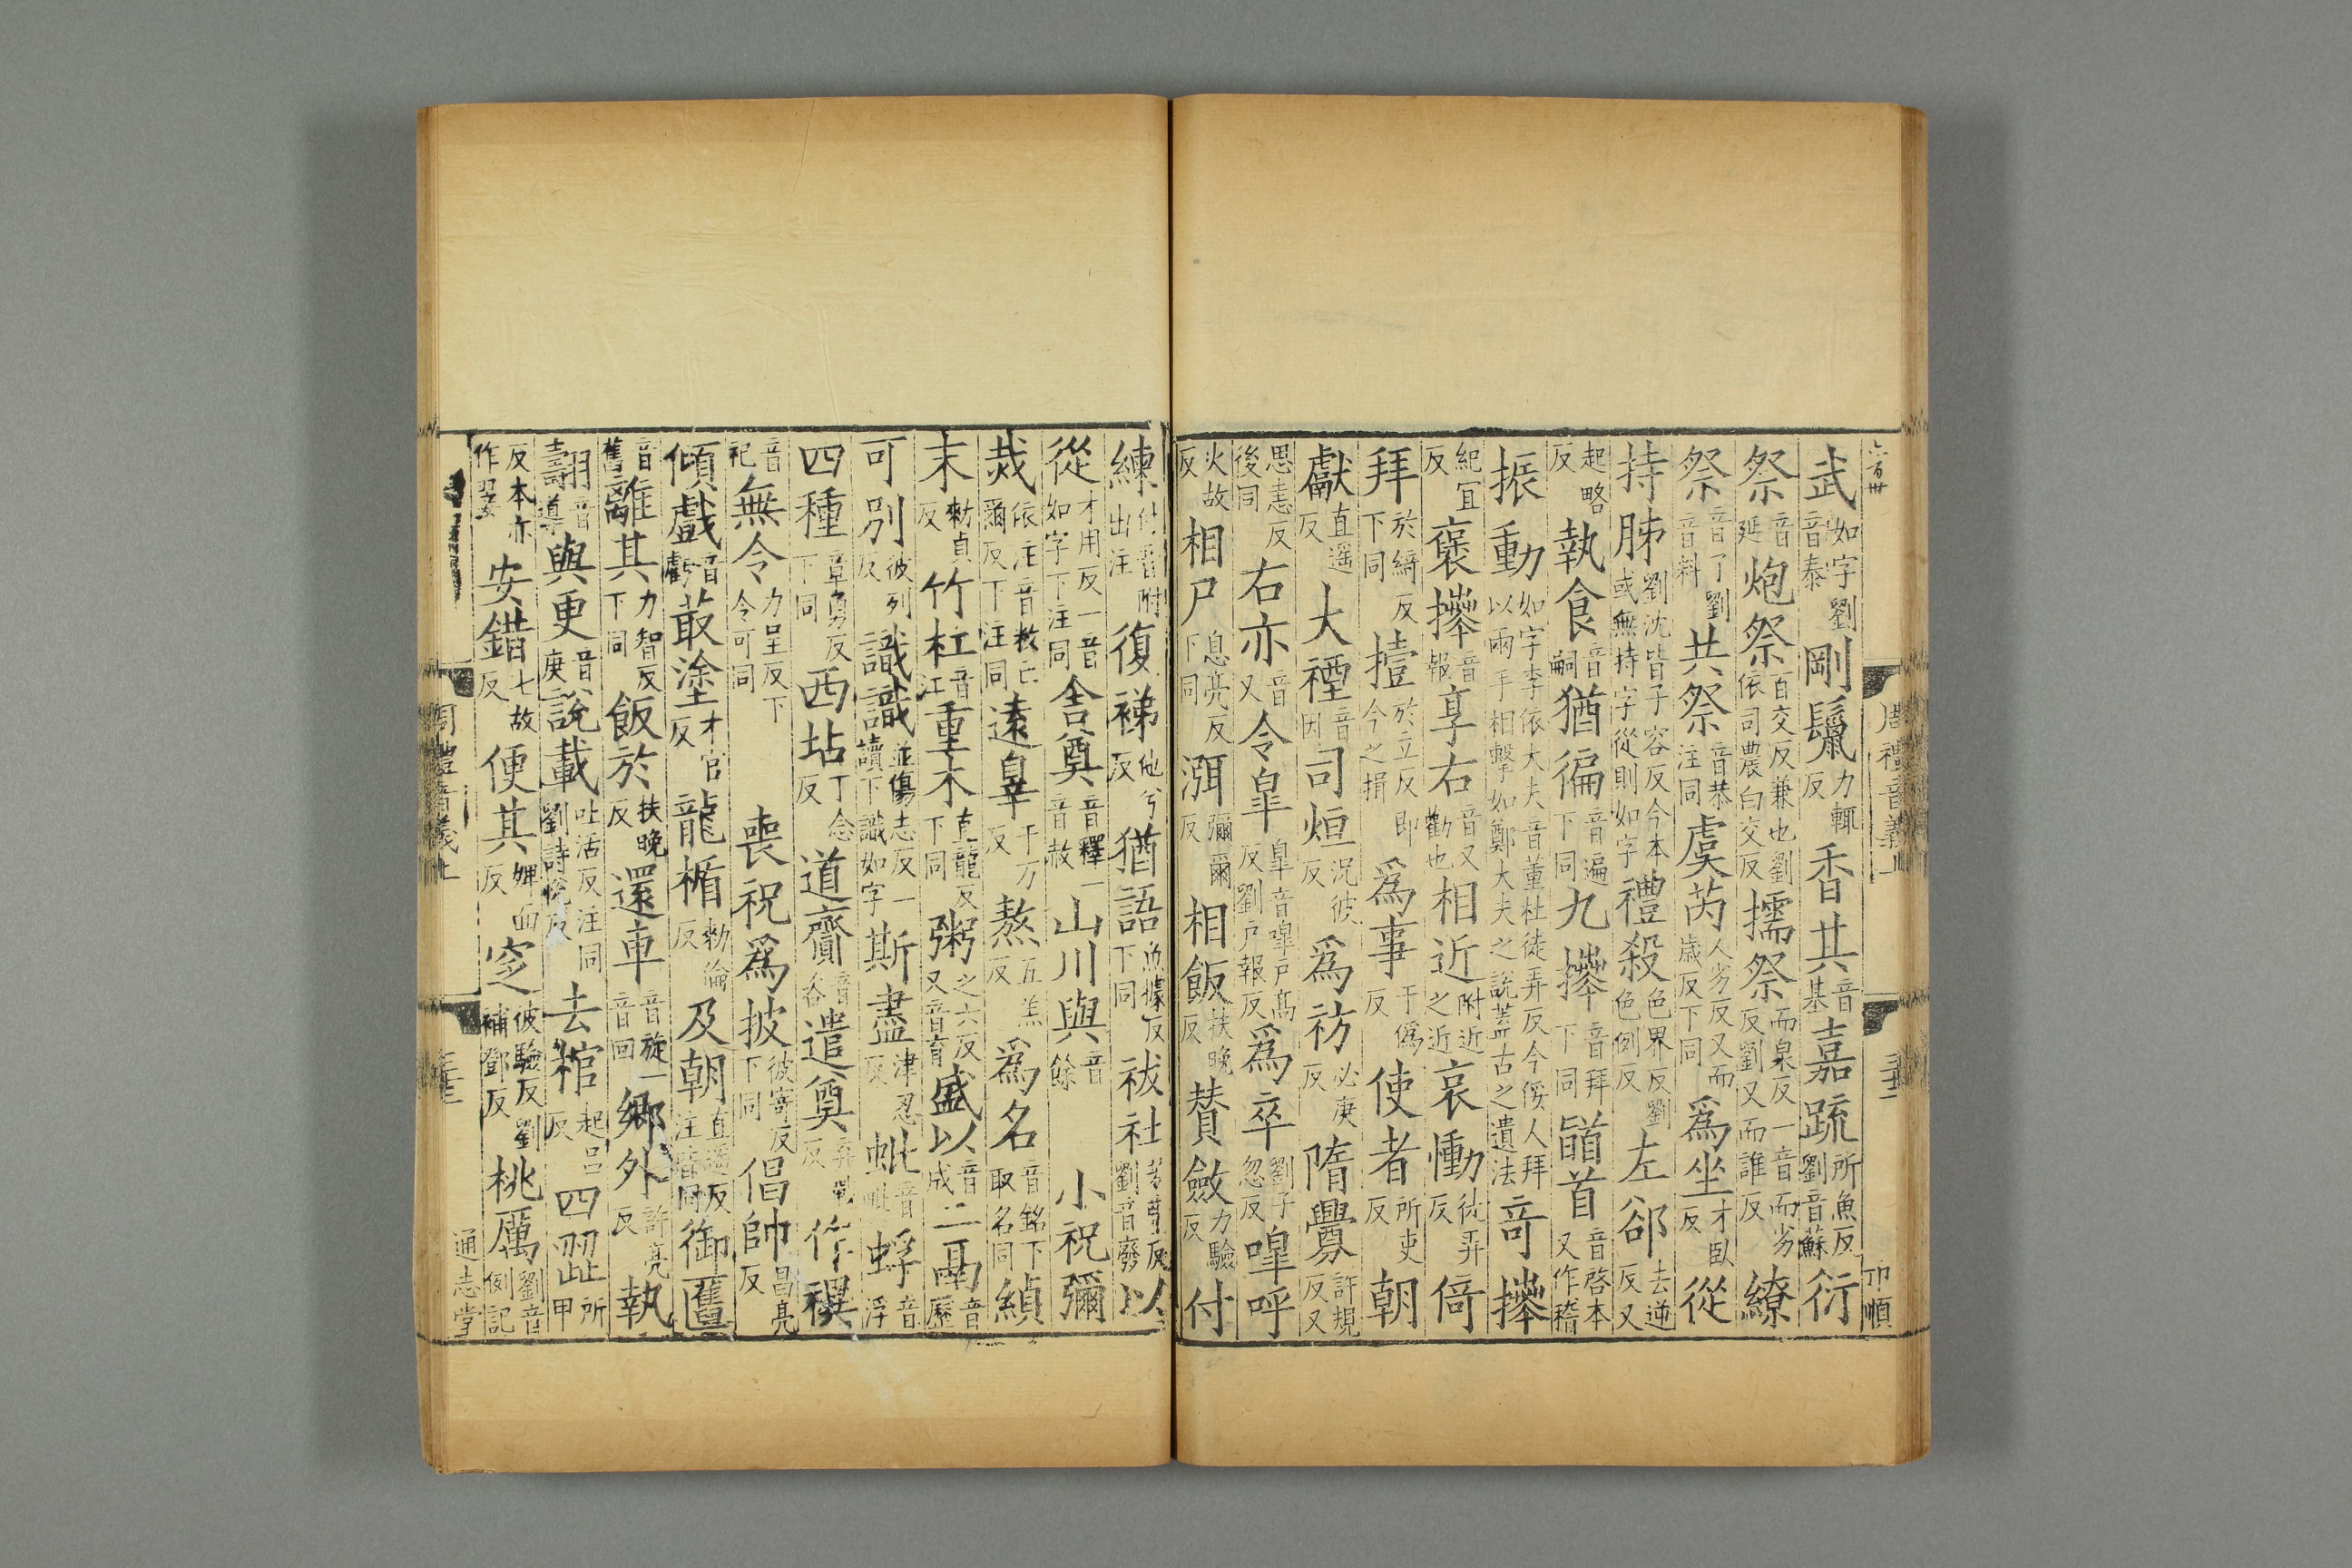 六百卅
周禮音義上
卬順
武如字劉音泰剛鬛力輒反香其音基嘉疏所魚反劉音蘇衍
祭音延炮祭百交反兼也劉依司農白交反擩祭而泉反一音而劣反劉又而誰反繚
祭音了劉音料共祭音恭注同虞芮人劣反又而歲反下同爲坐才臥反從
持肺劉沈皆子容反今本或無持字從則如字禮殺色界反劉色例反左卻去逆反又
起略反執食音嗣猶徧音遍下同九𢷎音拜下同䭫首音啓本又作稽
振動如字李依大夫音董杜徒弄反今倭人拜以兩手相擊如鄭大夫之說蓋古之遺法奇𢷎
紀宜反褒𢷎音報享右音又勸也相近附近之近哀慟徒弄反倚
拜於綺反下同撎於立反即今之揖爲事于僞反使者所吏反朝
獻直遥反大禋音因司烜況彼反爲祊必庚反隋釁許規反又
思恚反後同右亦音又令皐臯音嘷戶高反劉戶報反爲卒劉子忽反嘷呼
火故反相尸息亮反下同渳彌爾反相飯扶晚反賛斂力驗反付
練付音附出注復祶他兮反猶語魚據反下同祓社芳弗反劉音廢以
從才用反一音如字下注同舍奠音釋一音赦山川與音餘小祝彌
烖依注音敉亡爾反下注同遠辠于万反熬五羔反爲名音銘下取名同䞓
末勑貞反竹杠音江重木直龍反下同粥之六反又音育盛以音成二鬲音歷
可別彼列反識識並傷志反一讀下識如字斯盡津忍反蚍音毗蜉音浮
四種章勇反下同西坫丁念反道齎音咨遣奠弃戰反作禩
音祀無令力呈反下令可同喪祝爲披彼寄反下同倡帥昌亮反
傾戲音虧菆塗才官反龍楯勑倫反及朝直遥反注皆同御匶
音舊離其力智反下同飯於扶晚反還車音旋一音回鄉外許亮反執
翿音導與更音庚說載吐活反注同劉詩悅反去棺起呂反四歰所甲
反本亦作翣安錯七故反便其婢面反窆彼驗反劉補鄧反桃厲劉音例記
周禮音義上
通志堂